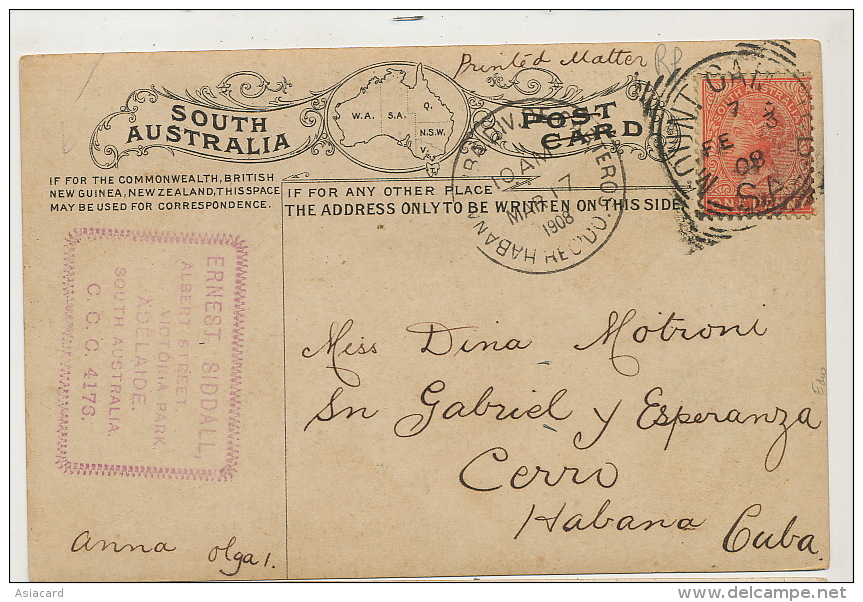 Printed Matter
SOUTH AUSTRALIA
W.A. S.A. Q. N.S.W. V.
POST CARD
IF FOR THE COMMONWEALTH, BRITISH
NEW GUINEA, NEW ZEALAND, THIS SPACE
MAY BE USED FOR CORRESPONDENCE.
IF FOR ANY OTHER PLACE
THE ADDRESS ONLY TO BE WRITTEN ON THIS SIDE.
10 AM
MAR 17
1908
HABANA
MOUNT
FE
08
S.A.
SOUTH AUSTRALIA
ERNEST SIDDALL,
ALBERT STREET
VICTORIA PARK,
ADELAIDE.
SOUTH AUSTRALIA.
C. C. C. 4176.
Miss Dina Motroni
Sn Gabriel y Esperanza
Cerro
Habana Cuba.
anna olga 1.
Asiacard
delcampe.net